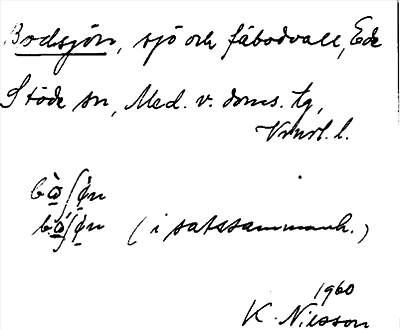 Bodsjön, sjö och fäbodvall, Ede
Stöde sn, Med. v. doms. tg,
Vnrl. l.
(i satssammanh.)
1960
K. Nilsson